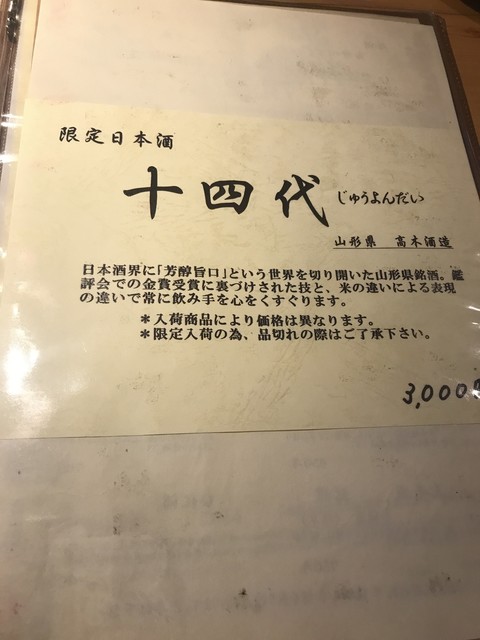 限定日本酒
十四代 じゅうよんだい
山形県 高木酒造
日本酒界に「芳醇旨口」という世界を切り開いた山形県銘酒。鑑
評会での金賞受賞に裏づけされた技と、米の違いによる表現
の違いで常に飲み手を心をくすぐります。
＊入荷商品により価格は異なります。
＊限定入荷の為、品切れの際はご了承下さい。
3,000